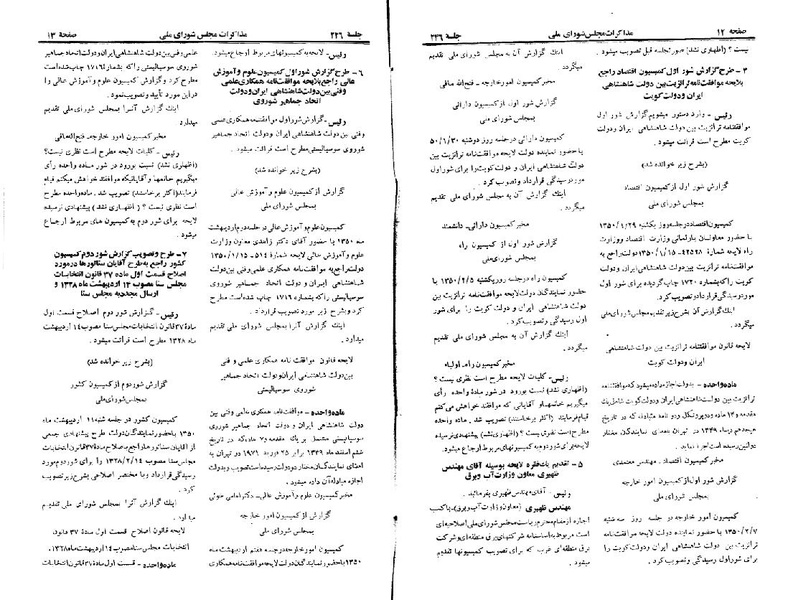 صفحه ۱۲
مذاکرات مجلس شورای ملی
جلسه ۲۲۶
نیست ؟ (اظهاری نشد) صورتجلسه قبل تصویب میشود .
۳ ـ طرح گزارش شور اول کمیسیون اقتصاد راجع
بلایحه موافقتنامه ترانزیت بین دولت شاهنشاهی
ایران و دولت کویت
رئیس ـ وارد دستور میشویم گزارش شور اول
موافقتنامه ترانزیت بین دولت شاهنشاهی ایران و دولت
کویت مطرح است قرائت میشود .
(بشرح زیر خوانده شد)
گزارش شور اول از کمیسیون اقتصاد
بمجلس شورای ملی
کمیسیون اقتصاد در جلسه روز یکشنبه ۱۳۵۰/۱/۲۹
با حضور معاونان پارلمانی وزارت اقتصاد و وزارت
راه لایحه شماره ۴۲۵۲۸ـ۱۳۵۰/۱/۱۵ دولت راجع به
موافقتنامه ترانزیت بین دولت شاهنشاهی ایران و دولت
کویت را که بشماره ۱۷۲۰ چاپ گردیده برای شور اول
مورد رسیدگی قرار داد و تصویب کرد.
اینک گزارش آن بشرح زیر تقدیم مجلس شورای ملی
میگردد .
لایحه قانون موافقتنامه ترانزیت بین دولت شاهنشاهی
ایران و دولت کویت
ماده واحده ـ بدولت اجازه داده میشود که موافقتنامه
ترانزیت بین دولت شاهنشاهی ایران و دولت کویت شامل یک
مقدمه و ۱۳ ماده و دو پروتکل و دو نامه متبادله که در تاریخ
۱۳۴۹ در تهران بامضای نمایندگان مختار
دولتین رسیده است اجرا نماید .
مخبر کمیسیون اقتصاد ـ مهندس معتمدی
گزارش شور اول از کمیسیون امور خارجه
بمجلس شورای ملی
کمیسیون امور خارجه در جلسه روز سه شنبه
۱۳۵۰/۲/۷ با حضور نمایندگان دولت لایحه موافقتنامه
ترانزیت بین دولت شاهنشاهی ایران و دولت کویت را
برای شور اول رسیدگی و تصویب کرد .
اینک گزارش آن به مجلس شورای ملی تقدیم
میگردد .
مخبر کمیسیون امور خارجه ـ فتح اله مافی
گزارش شور اول از کمیسیون دارائی
بمجلس شورای ملی
کمیسیون دارائی در جلسه روز دوشنبه ۵۰/۱/۳۰
با حضور نماینده دولت لایحه موافقتنامه ترانزیت بین
دولت شاهنشاهی ایران و دولت کویت را برای شور اول
مورد رسیدگی قرار داد و تصویب کرد .
اینک گزارش آن به مجلس شورای ملی تقدیم
میگردد .
مخبر کمیسیون دارائی ـ دانشمند
گزارش شور اول از کمیسیون راه
بمجلس شورای ملی
کمیسیون راه در جلسه روز یکشنبه ۱۳۵۰/۲/۵ با
حضور نمایندگان دولت لایحه موافقتنامه ترانزیت بین
دولت شاهنشاهی ایران و دولت کویت را برای شور
اول رسیدگی و تصویب کرد .
اینک گزارش آن به مجلس شورای ملی تقدیم
میگردد .
مخبر کمیسیون راه ـ اولیاء
رئیس ـ کلیات لایحه مطرح است نظری نیست ؟
(اظهاری نشد) نسبت بورود در شور مادهٔ واحده رأی
میگیریم خانمها و آقایانی که موافقند خواهش میکنم
قیام فرمایند (اکثر برخاستند) تصویب شد . ماده واحده
مطرح است نظری نیست ؟ (اظهاری نشد) پیشنهادی نرسیده
لایحه برای شور دوم به کمیسیونهای مربوط ارجاع میشود.
۵ ـ تقدیم یک فقره لایحه بوسیله آقای مهندس
ظهیری معاون وزارت آب و برق
رئیس ـ آقای مهندس ظهیری بفرمائید .
مهندس ظهیری (معاون وزارت آب و برق) ـ با کسب
اجازه از مقام محترم ریاست مجلس شورای ملی اصلاحیه ای
است مربوط به اساسنامه شرکتهای برق منطقه ای و شرکت
برق منطقه ای غرب که برای تصویب به کمیسیونها تقدیم
میشود .
جلسه ۲۲۶
مذاکرات مجلس شورای ملی
صفحه ۱۳
رئیس ـ لایحه به کمیسیونهای مربوط ارجاع میشود.
۶ ـ طرح گزارش شور اول کمیسیون علوم و آموزش
عالی راجع بلایحه موافقتنامه همکاری علمی
وفنی بین دولت شاهنشاهی ایران و دولت
اتحاد جماهیر شوروی
رئیس ـ گزارش شور اول موافقتنامه همکاری علمی
و فنی بین دولت شاهنشاهی ایران و دولت اتحاد جماهیر
شوروی سوسیالیستی مطرح است قرائت میشود .
(بشرح زیر خوانده شد)
گزارش از کمیسیون علوم و آموزش عالی
بمجلس شورای ملی
کمیسیون علوم و آموزش عالی در جلسه دوم اردیبهشت
ماه ۱۳۵۰ با حضور آقای دکتر زاهدی معاون وزارت
علوم و آموزش عالی لایحه شماره ۵۱۴ ـ ۱۳۵۰/۱/۱۵
دولت راجع به موافقتنامه همکاری علمی و فنی بین دولت
شاهنشاهی ایران و دولت اتحاد جماهیر شوروی
سوسیالیستی را که بشماره ۱۷۱۶ چاپ شده است مطرح
کرد و بشرح زیر مورد تصویب قرار داد .
اینک گزارش آنرا بمجلس شورای ملی تقدیم
میدارد .
لایحه قانون موافقت نامه همکاری علمی و فنی
بین دولت شاهنشاهی ایران و دولت اتحاد جماهیر
شوروی سوسیالیستی
ماده واحده ـ موافقتنامه همکاری علمی وفنی بین
دولت شاهنشاهی ایران و دولت اتحاد جماهیر شوروی
سوسیالیستی مشتمل بر یک مقدمه و ۷ ماده که در تاریخ
ششم اسفندماه ۱۳۴۹ برابر ۲۵ فوریه ۱۹۷۱ در تهران به
امضای نمایندگان مختار دولتین رسیده است تصویب و
اجازه مبادله آن داده میشود .
مخبر کمیسیون علوم و آموزش عالی ـ دکتر امامی خوئی
گزارش از کمیسیون امور خارجه
بمجلس شورای ملی
کمیسیون امور خارجه در جلسه هفتم اردیبهشت ماه
۱۳۵۰ با حضور نمایندگان دولت لایحه موافقتنامه همکاری
علمی و فنی بین دولت شاهنشاهی ایران و دولت اتحاد جماهیر
شوروی سوسیالیستی را که بشماره ۱۷۱۶ چاپ شده است
مطرح کرد و گزارش کمیسیون علوم و آموزش عالی را
در این مورد تأیید و تصویب نمود .
اینک گزارش آنرا بمجلس شورای ملی تقدیم
میدارد .
مخبر کمیسیون امور خارجه ـ فتح اله مافی
رئیس ـ کلیات لایحه مطرح است نظری نیست ؟
(اظهاری نشد) نسبت بورود در شور ماده واحده رأی
میگیریم خانمها و آقایانیکه موافقند خواهش میکنم قیام
فرمایند (اکثر برخاستند) تصویب شد . ماده واحده مطرح
است نظری نیست ؟ (اظهاری نشد) پیشنهادی نرسیده
لایحه برای شور دوم به کمیسیون های مربوط ارجاع
میشود .
۷ ـ طرح و تصویب گزارش شور دوم کمیسیون
کشور راجع به طرح آقایان سناتورها در مورد
اصلاح قسمت اول ماده ۳۷ قانون انتخابات
مجلس سنا مصوب ۱۴ اردیبهشت ماه ۱۳۳۸ و
ارسال مجدد به مجلس سنا
رئیس ـ گزارش شور دوم اصلاح قسمت اول
مادهٔ ۳۷ قانون انتخابات مجلس سنا مصوب ۱۴ اردیبهشت
ماه ۱۳۳۸ مطرح است قرائت میشود .
(بشرح زیر خوانده شد)
گزارش شور دوم از کمیسیون کشور
بمجلس شورای ملی
کمیسیون کشور در جلسه شنبه ۱۱ اردیبهشت ماه
۱۳۵۰ با حضور نمایندگان دولت طرح پیشنهادی جمعی
از آقایان سناتورها مربوط به اصلاح مادهٔ ۳۷ قانون انتخابات
مجلس سنا مصوب ۱۳۳۸/۲/۱۴ را برای شور دوم مورد
رسیدگی قرار داد و با مختصر اصلاحی بشرح زیر تصویب
کرد .
اینک گزارش آنرا بمجلس شورای ملی تقدیم
میدارد .
لایحه قانون اصلاح قسمت اول مادهٔ ۳۷ قانون
انتخابات مجلس سنا مصوب ۱۴ اردیبهشت ماه ۱۳۳۸
ماده واحده ـ قسمت اول مادهٔ ۳۷ قانون انتخابات